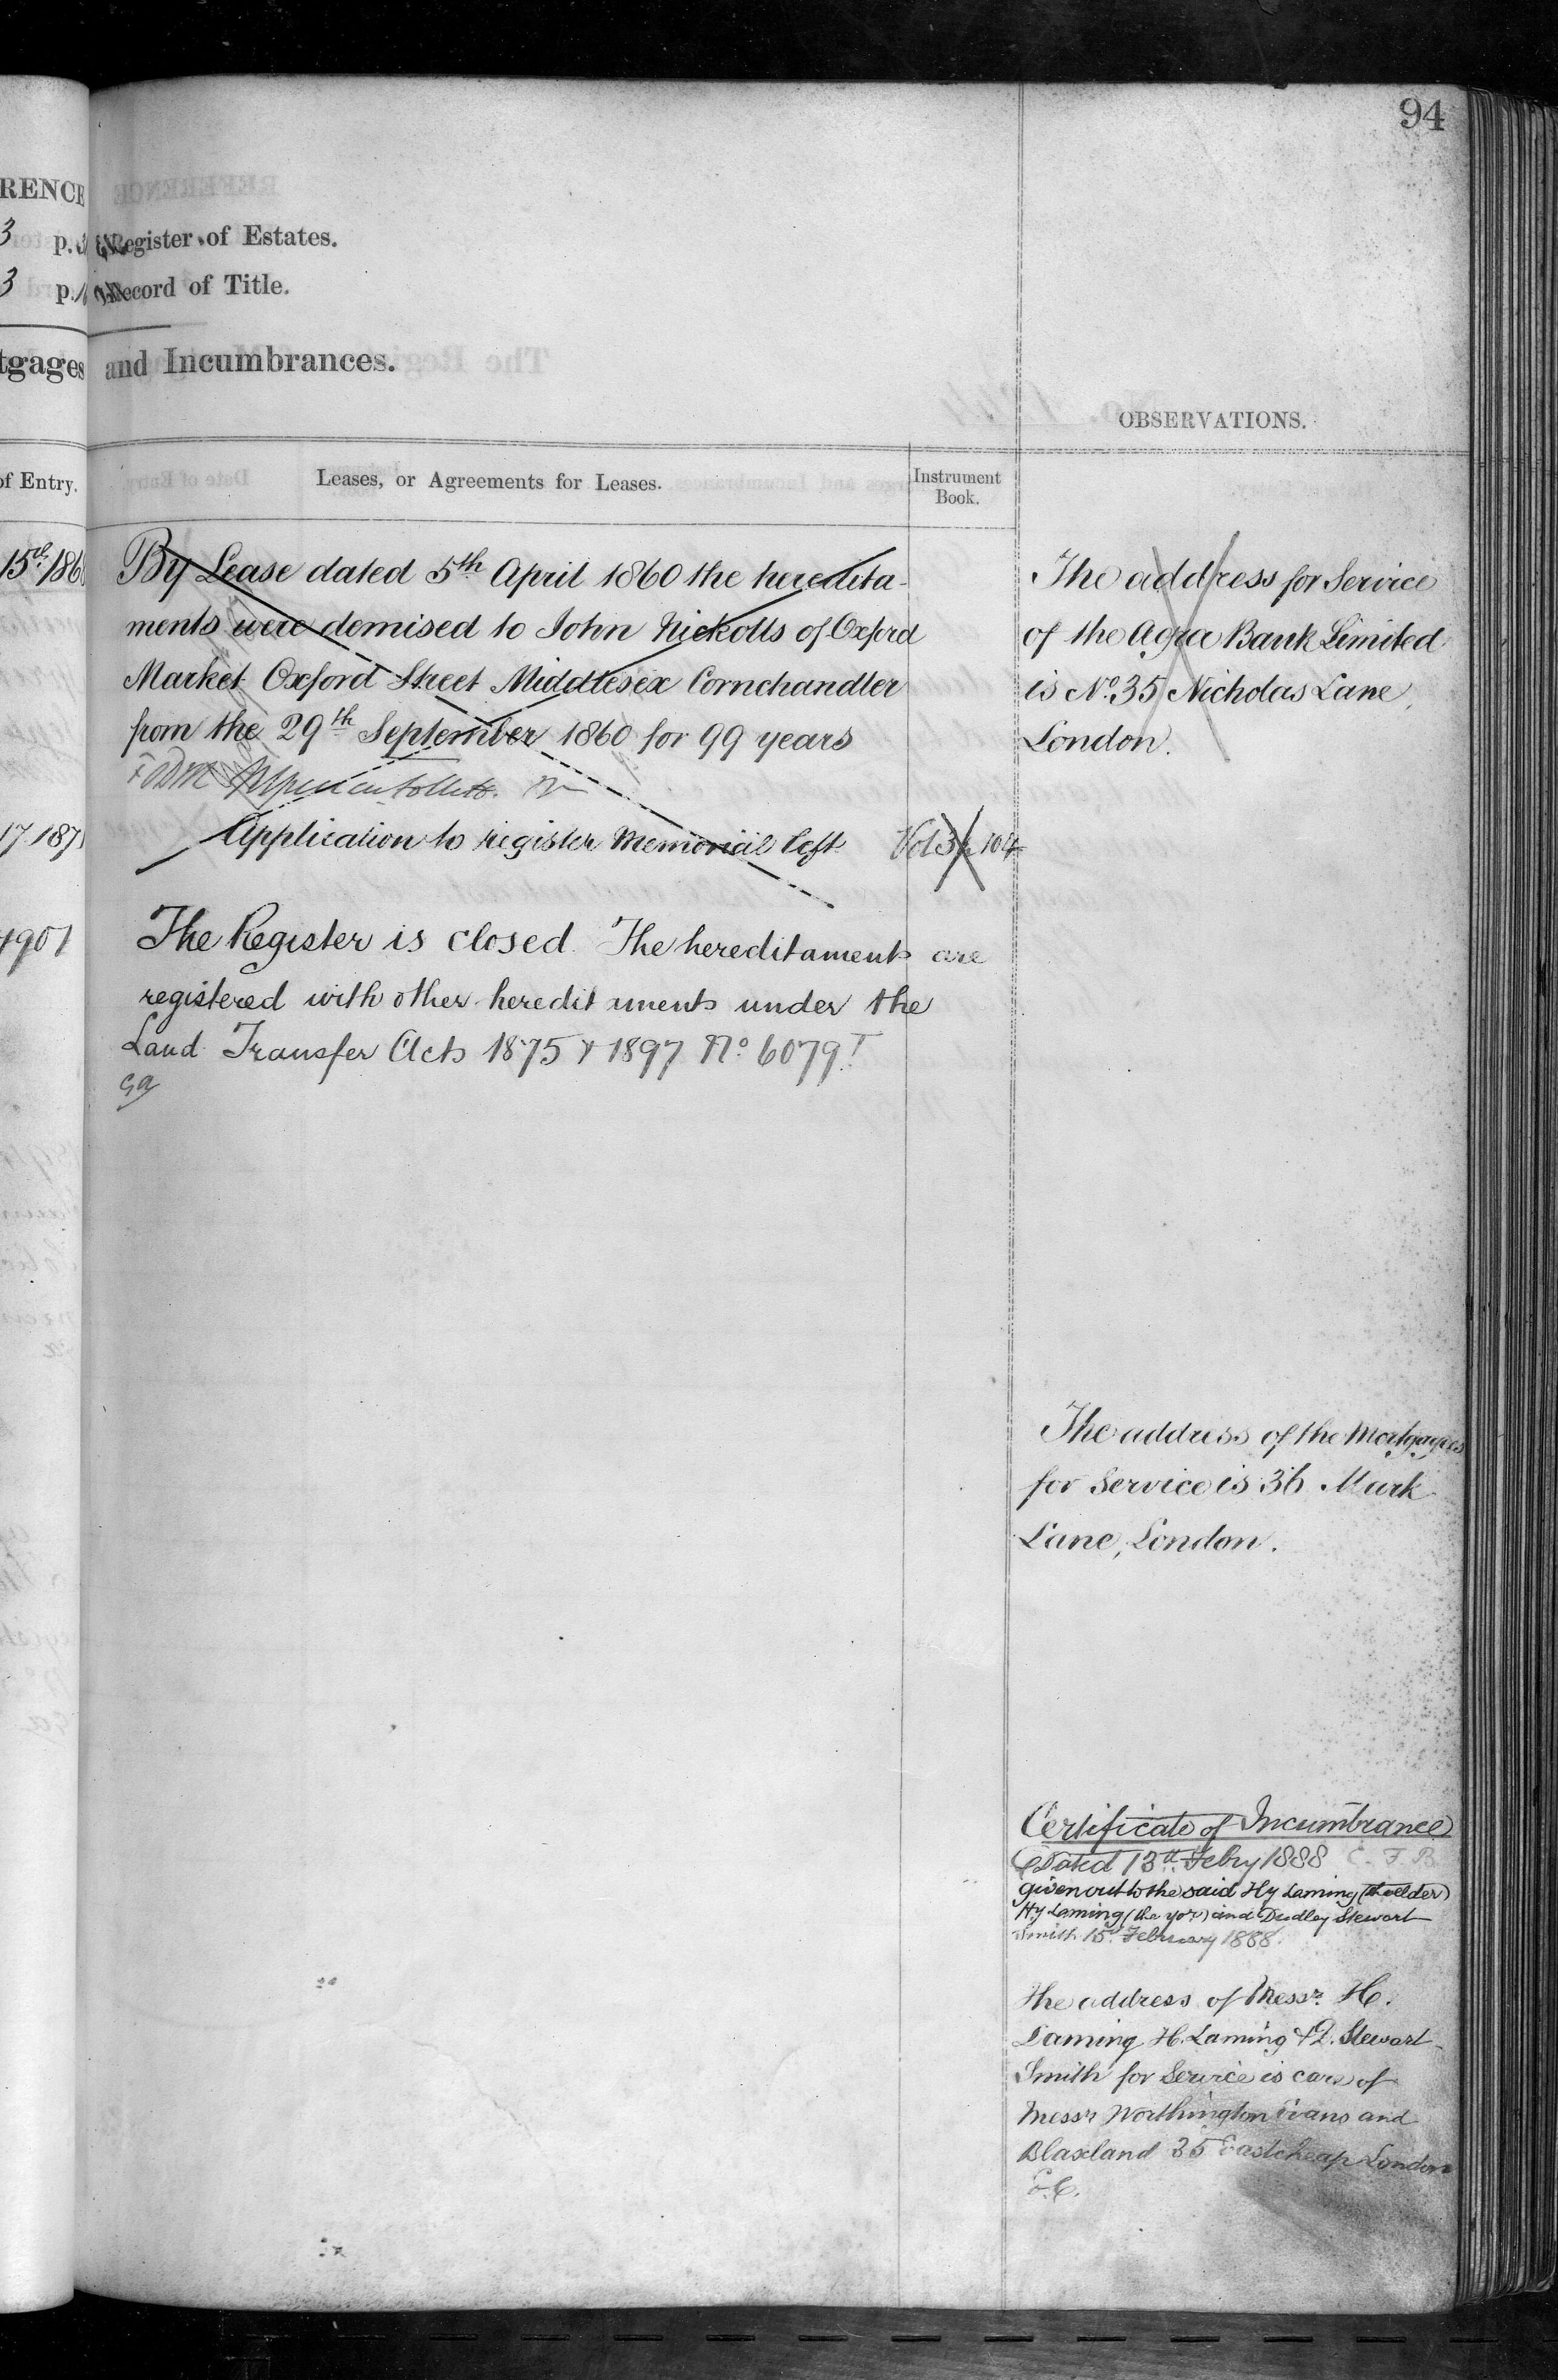 94
RENCE
3 p.
Register of Estates.
3 p.
Record of Title.
tgages and Incumbrances.
OBSERVATIONS.
of Entry.
Leases, or Agreements for Leases.
Instrument
Book.
15th 186
By Lease dated 5th April 1860 the heredita-
ments were demised to John Nickolls of Oxford
Market Oxford Street Middlesex Cornchandler
from the 29th September 1860 for 99 years
17 187
Application to register Memorial left
Vol 3 p 104
1901
The Register is closed. The hereditaments are
registered with other heredit aments under the
Land Transfer Acts 1875 & 1897 No 6079
ga
The address for Service
of the Agra Bank Limited
is No. 35 Nicholas Lane,
London.
The address of the Mortgagees
for Service is 36 Mark
Lane, London.
Certificate of Incumbrance
Dated 13th Febry 1888 C. F. B
given out to the said Hy Laming (the elder)
Hy Laming (the yor) and Dudley Stewart
Smith 15 February 1888.
The address of Messrs. H.
Laming H. Laming & D. Stewart-
Smith for Service is care of
Messrs Worthington Evans and
Blaxland 35 Eastcheap London
E.C.